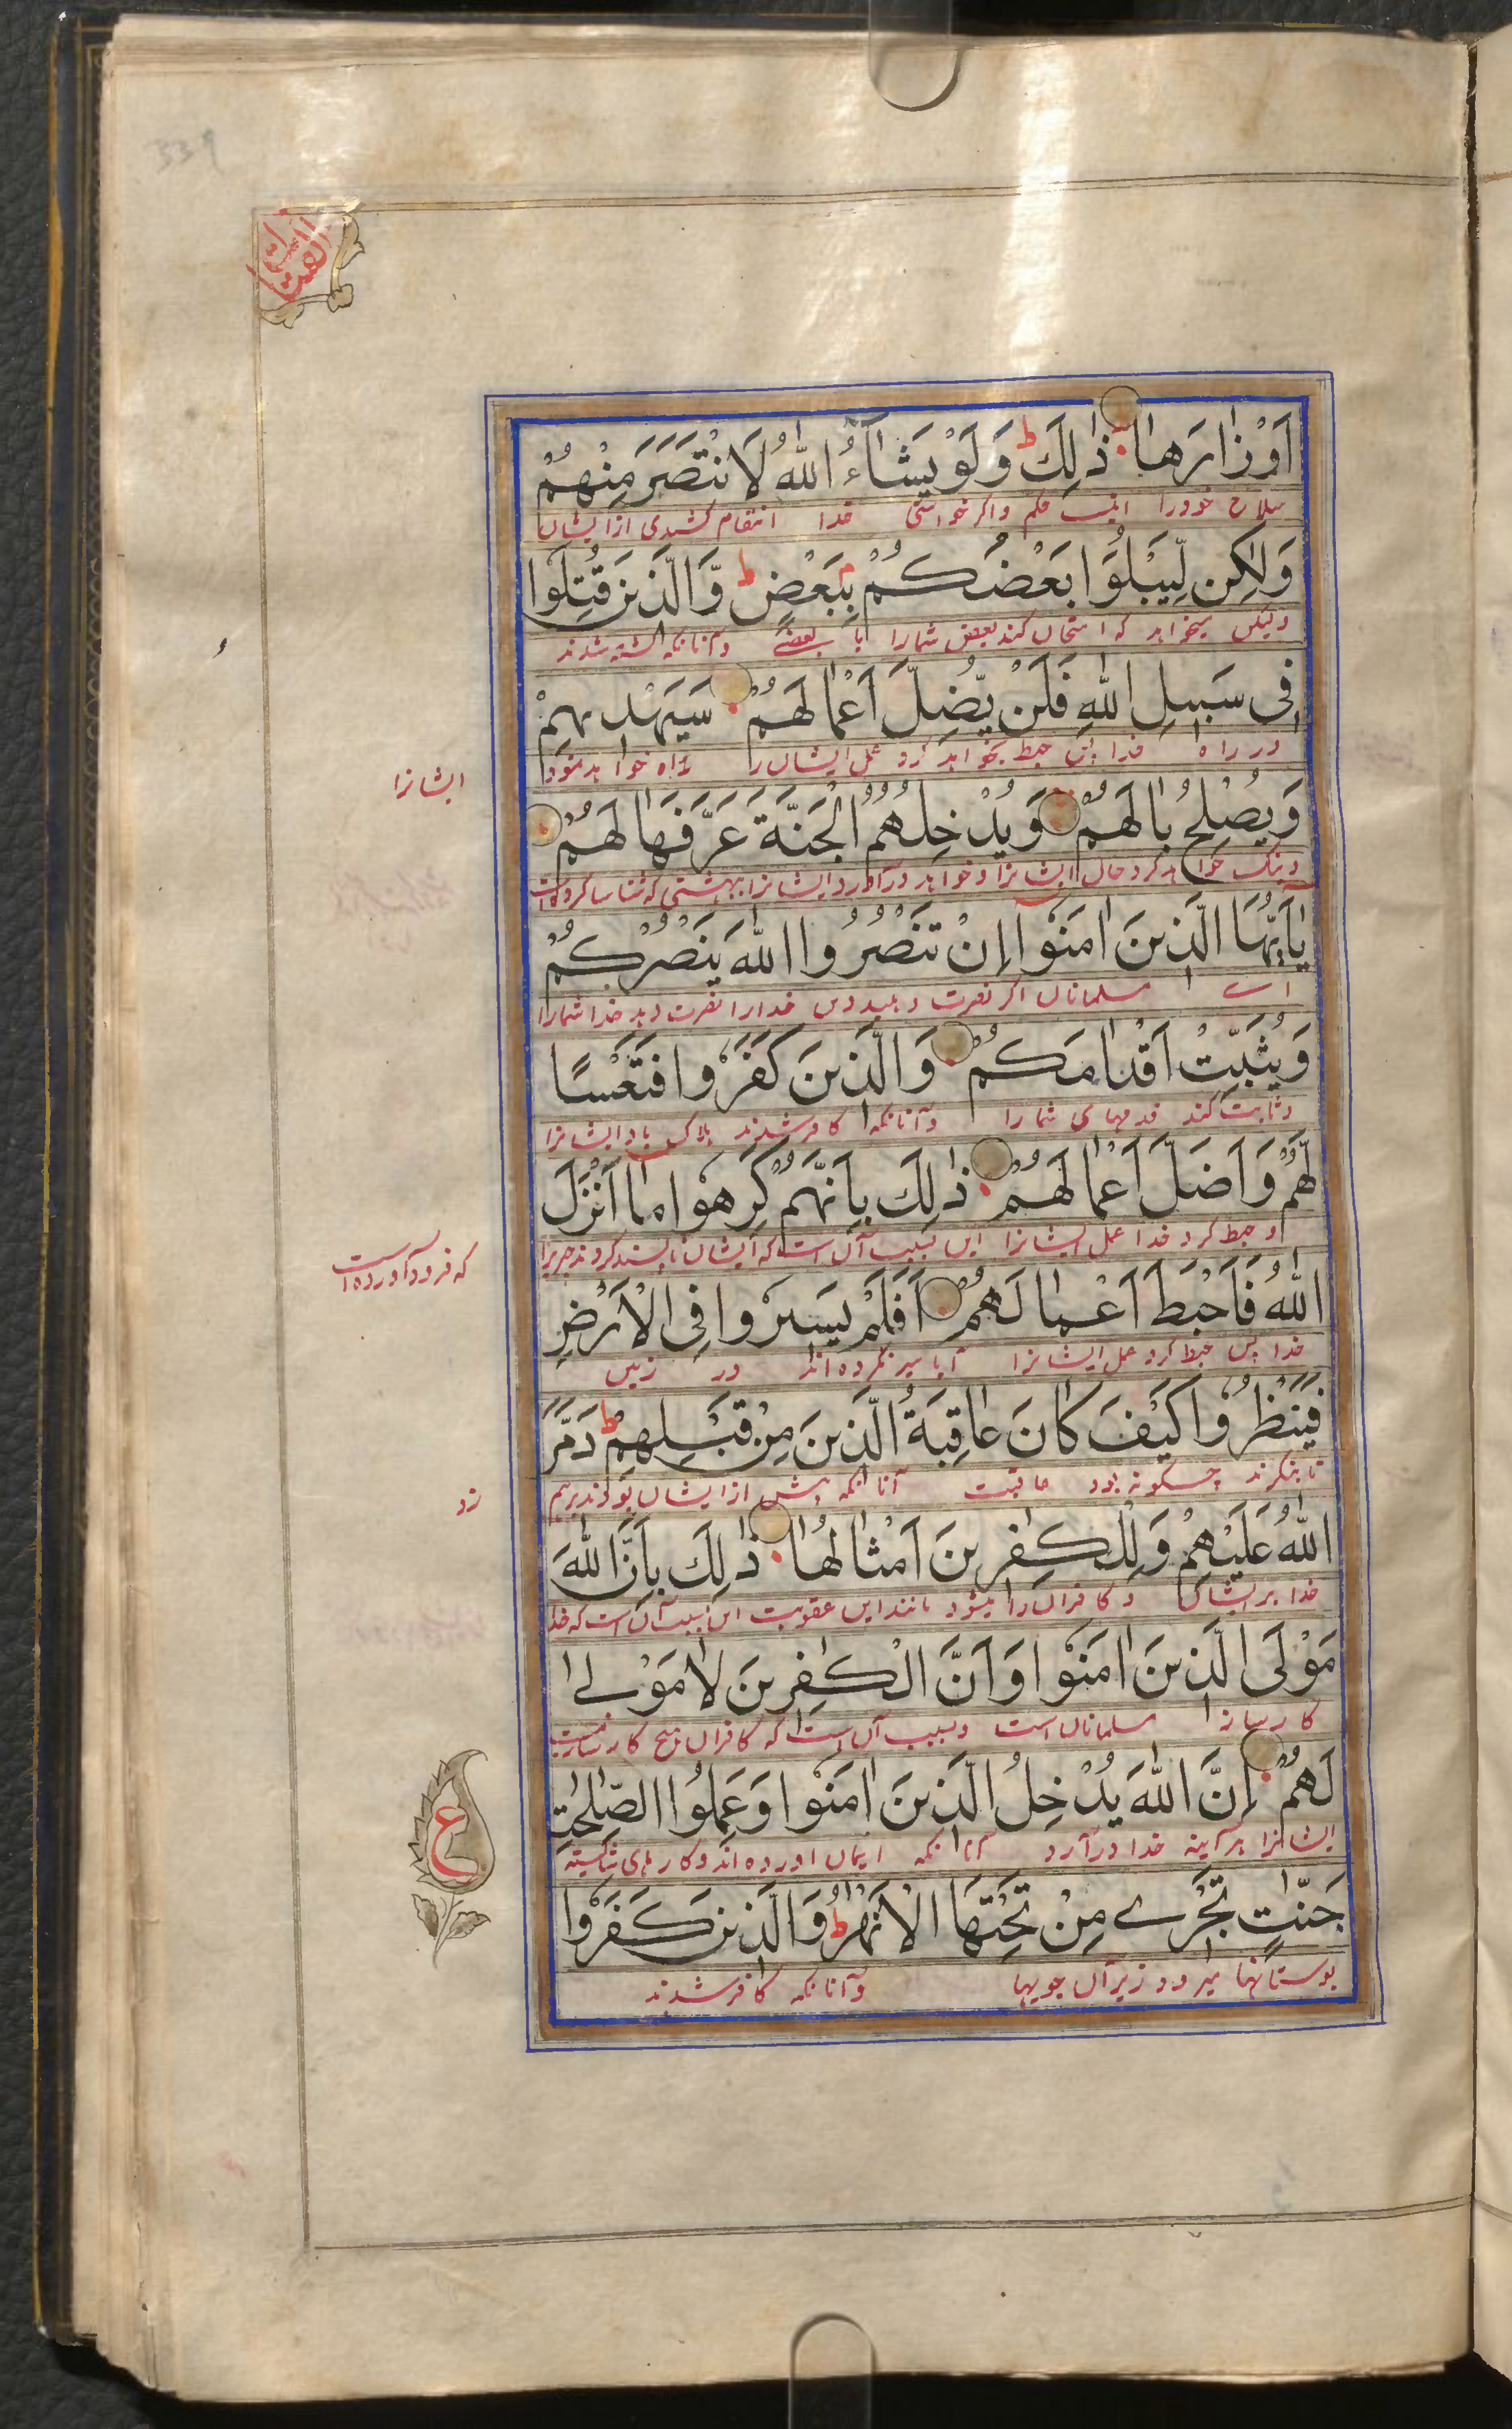 339
اَوْزَارَهَا ذٰلِكَ ط وَلَوْ يَشَآءُ اللّٰهُ لَانْتَصَرَ مِنْهُمْ
سلاح خود را اینست حکم واگر خواستی خدا انتقام کشیدی از ایشان
وَلٰكِنْ لِّيَبْلُوَا بَعْضَكُمْ بِبَعْضٍ ط وَّالَّذِيْنَ قُتِلُوْا
ولیکن میخواهد که امتحان کند بعض شمارا با بعضے و آنانکه کشته شدند
فِىْ سَبِيْلِ اللّٰهِ فَلَنْ يُّضِلَّ اَعْمَالَهُمْ سَيَهْدِيْهِمْ
در راه خدا پس حبط نخواهد کرد عمل ایشان را راه خواهد نمود
ایشانرا
وَيُصْلِحُ بَالَهُمْ وَيُدْخِلُهُمُ الْجَنَّةَ عَرَّفَهَا لَهُمْ
ونیک خواهد کرد حال ایشانرا و خواهد درآورد ایشانرا ببهشتی که شناسا کرده است
يٰٓاَيُّهَا الَّذِيْنَ اٰمَنُوْٓا اِنْ تَنْصُرُوا اللّٰهَ يَنْصُرْكُمْ
اے مسلمانان اگر نصرت دهید دین خدارا نصرت دهد خدا شمارا
وَيُثَبِّتْ اَقْدَامَكُمْ وَالَّذِيْنَ كَفَرُوْا فَتَعْسًا
وثابت کند قدمهای شمارا وآنانکه کافر شدند هلاک باد ایشانرا
لَّهُمْ وَاَضَلَّ اَعْمَالَهُمْ ذٰلِكَ بِاَنَّهُمْ كَرِهُوْا مَآ اَنْزَلَ
و حبط کرد خدا عمل ایشانرا این بسبب آن است که ایشان ناپسند کردند چیزیرا
که فرود آورده است
اللّٰهُ فَاَحْبَطَ اَعْمَالَهُمْ اَفَلَمْ يَسِيْرُوْا فِى الْاَرْضِ
خدا پس حبط کرد عمل ایشانرا آیا سیر نکرده اند در زمین
فَيَنْظُرُوْا كَيْفَ كَانَ عَاقِبَةُ الَّذِيْنَ مِنْ قَبْلِهِمْ ط دَمَّرَ
تا بنگرند چگونه بود عاقبت آنانکه پیش از ایشان بودند برهم
زد
اللّٰهُ عَلَيْهِمْ وَلِلْكٰفِرِيْنَ اَمْثَالُهَا ذٰلِكَ بِاَنَّ اللّٰهَ
خدا بر ایشان و کافران را میشود مانند این عقوبت این بسبب آن است که خدا
مَوْلَى الَّذِيْنَ اٰمَنُوْا وَاَنَّ الْكٰفِرِيْنَ لَا مَوْلٰى
کارساز مسلمانان است وبسبب آن است که کافران هیچ کارساز نیست
لَهُمْ اِنَّ اللّٰهَ يُدْخِلُ الَّذِيْنَ اٰمَنُوْا وَعَمِلُوا الصّٰلِحٰتِ
ایشانرا هر آینه خدا درآرد آنانکه ایمان آورده اند و کارهای شایسته
ع
جَنّٰتٍ تَجْرِىْ مِنْ تَحْتِهَا الْاَنْهٰرُ ط وَالَّذِيْنَ كَفَرُوْا
بوستانها میرود زیر آن جویها وآنانکه کافر شدند